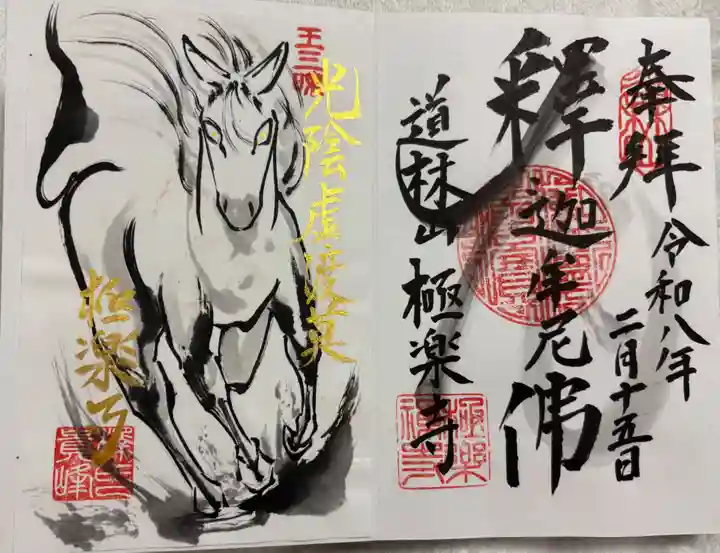 奉拝
令和八年
二月十五日
釋迦牟尼佛
道林山極楽寺
極楽寺印
光陰虚度莫
極楽丁